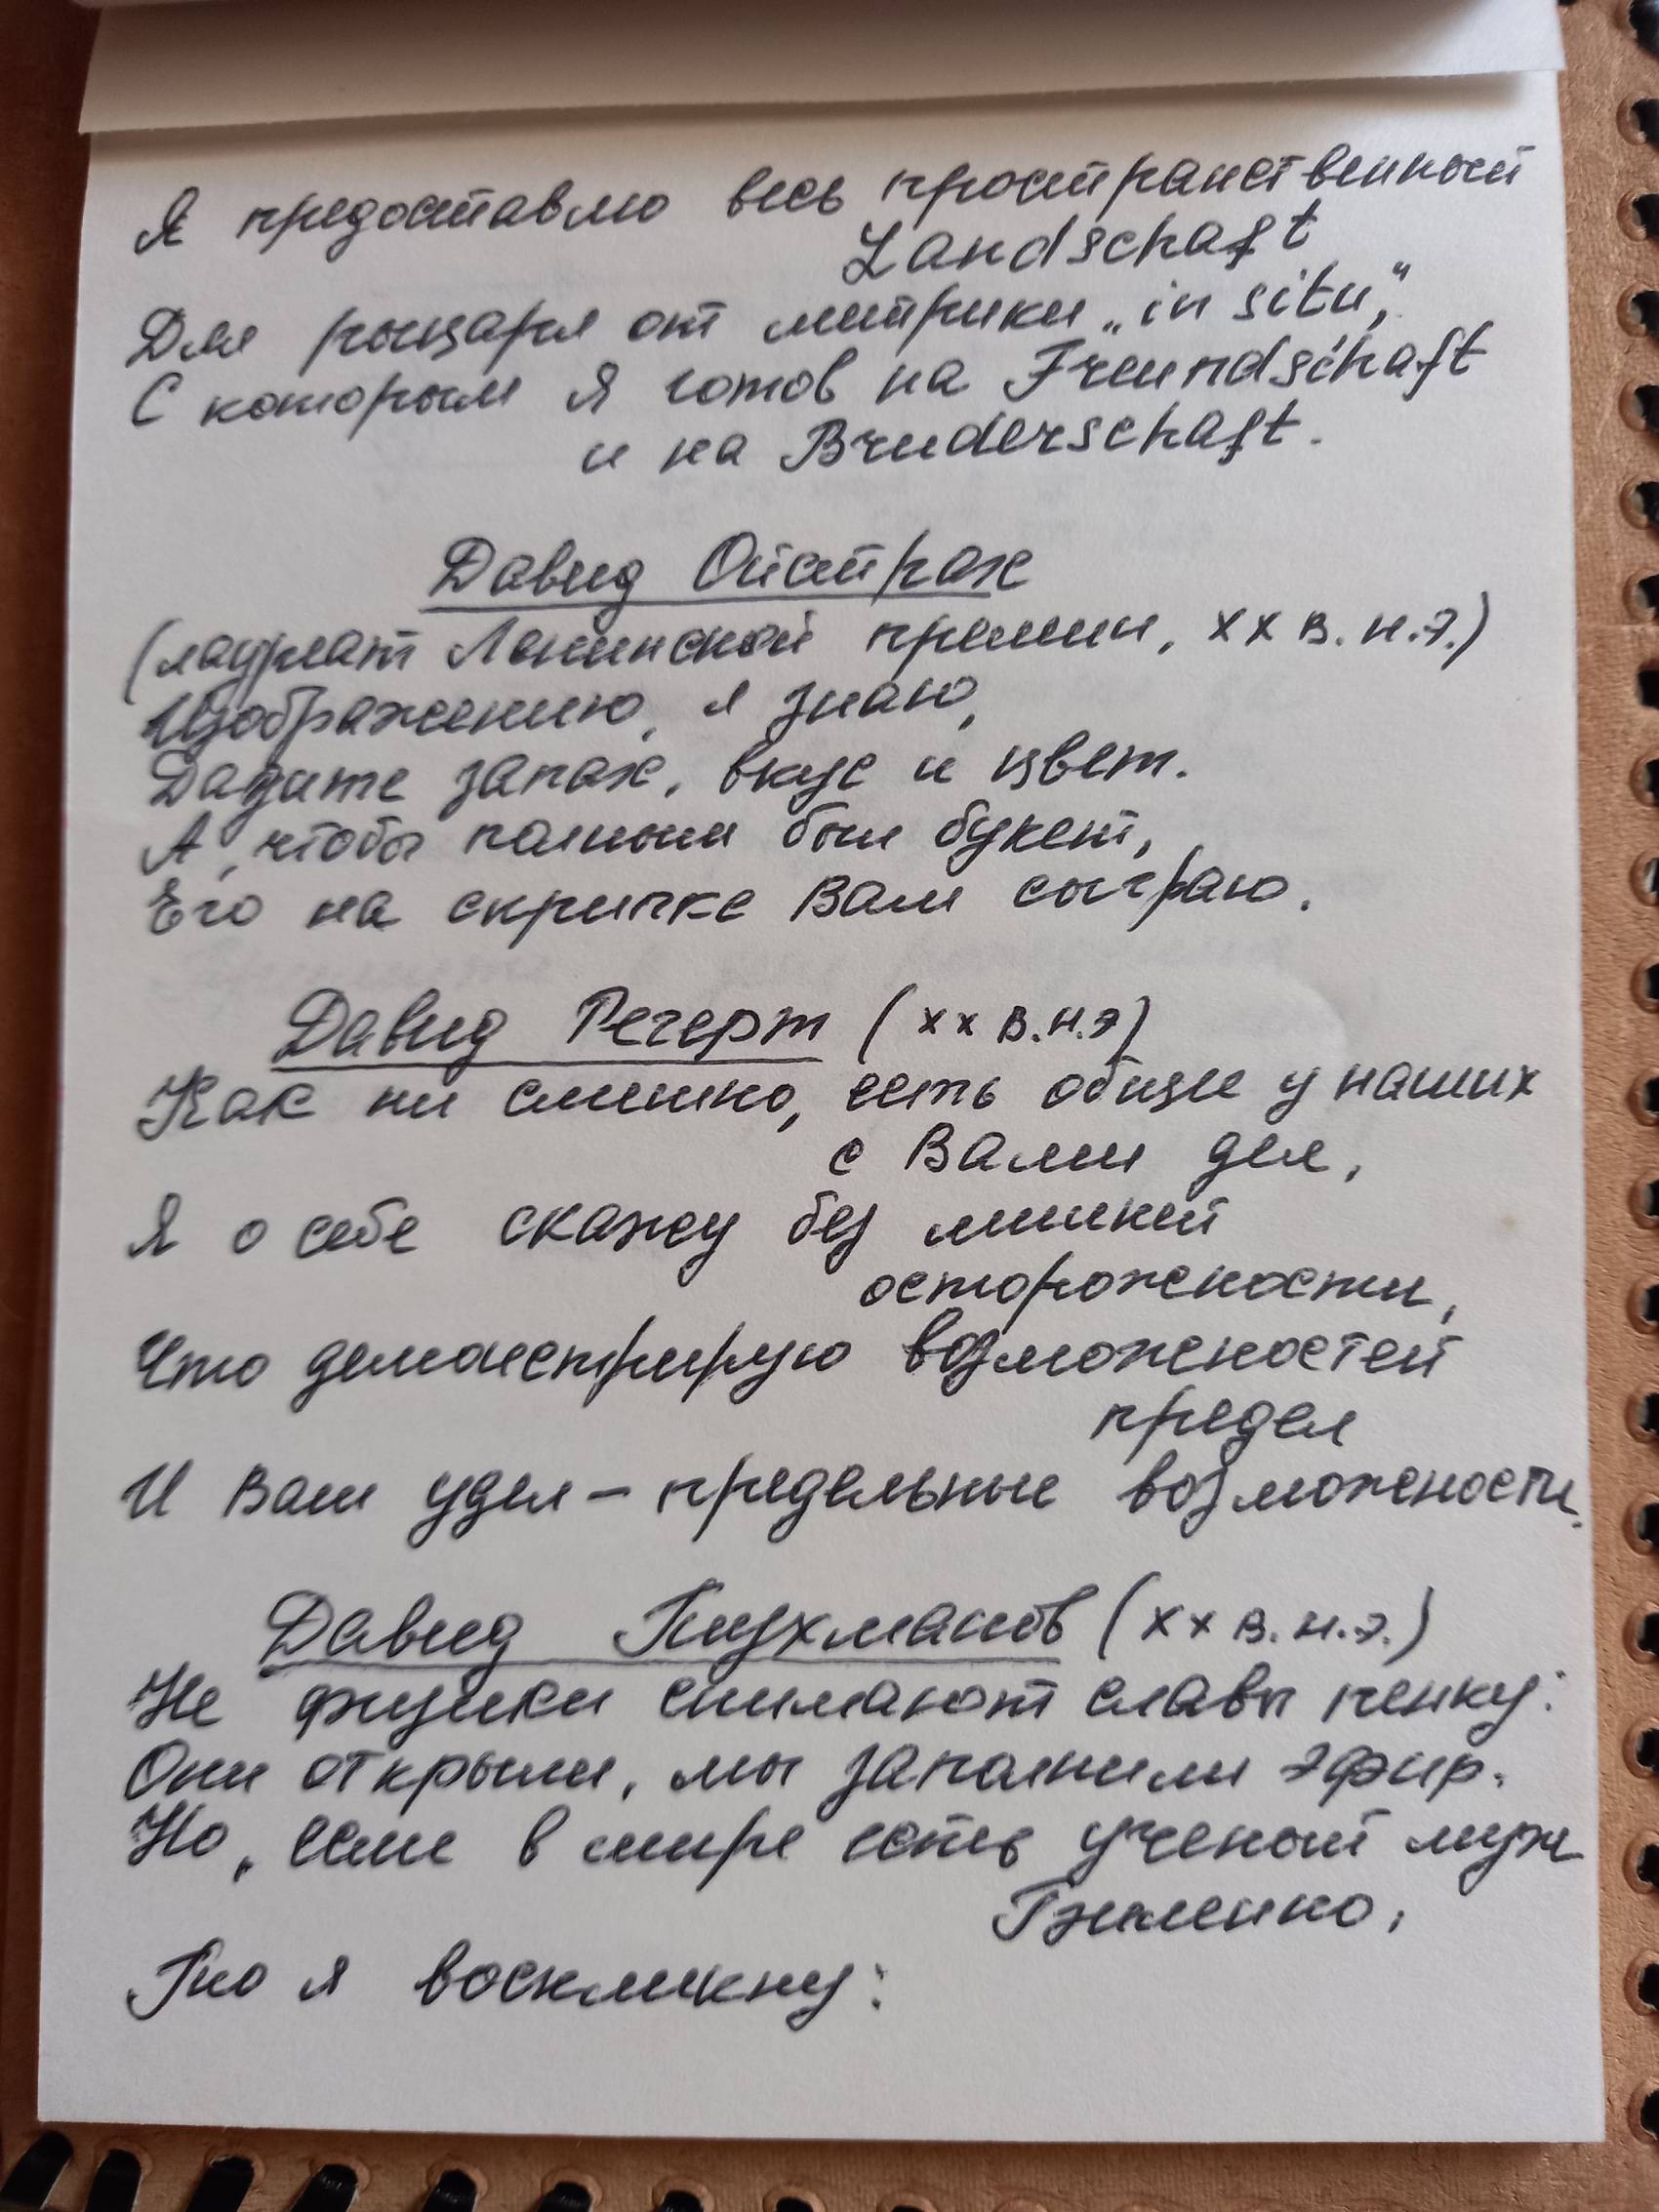 Я предоставлю весь пространственный
Landschaft
Для рыцаря от метрики „in situ“,
С которым я готов на Freundschaft
и на Bruderschaft.
Давид Ойстрах
(лауреат Ленинской премии, XX в. н.э.)
Изображению, я знаю,
Дадите запах, вкус и цвет.
А, чтобы полным был букет,
Его на скрипке Вам сыграю.
Давид Регерт (XX в.н.э)
Как ни смешно, есть общее у наших
с Вами дел,
Я о себе скажу без лишней
осторожности,
Что демонстрирую возможностей
предел
И Ваш удел – предельные возможности.
Давид Тухманов (XX в. н.э.)
Не физики снимают славы пенку:
Они открыли, мы заполнили эфир.
Но, если в мире есть ученый муж
То я воскликну: